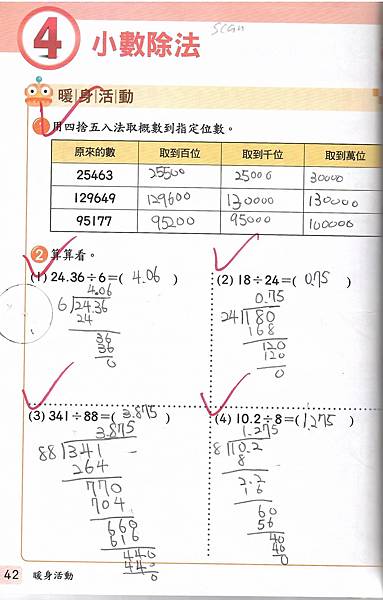 scan
4 小數除法
暖身活動
1 用四捨五入法取概數到指定位數。
原來的數 取到百位 取到千位 取到萬位
25463 25500 25000 30000
129649 129600 130000 130000
95177 95200 95000 100000
2 算算看。
(1) 24.36÷6=( 4.06 ) (2) 18÷24=( 0.75 )
4.06
6 24.36
24
36
36
0
0.75
24 180
168
120
120
0
(3) 341÷88=( 3.875 ) (4) 10.2÷8=( 1.275 )
3.875
88 341
264
770
704
660
616
440
440
0
1.275
8 10.2
8
2.2
16
60
56
40
40
0
42 暖身活動